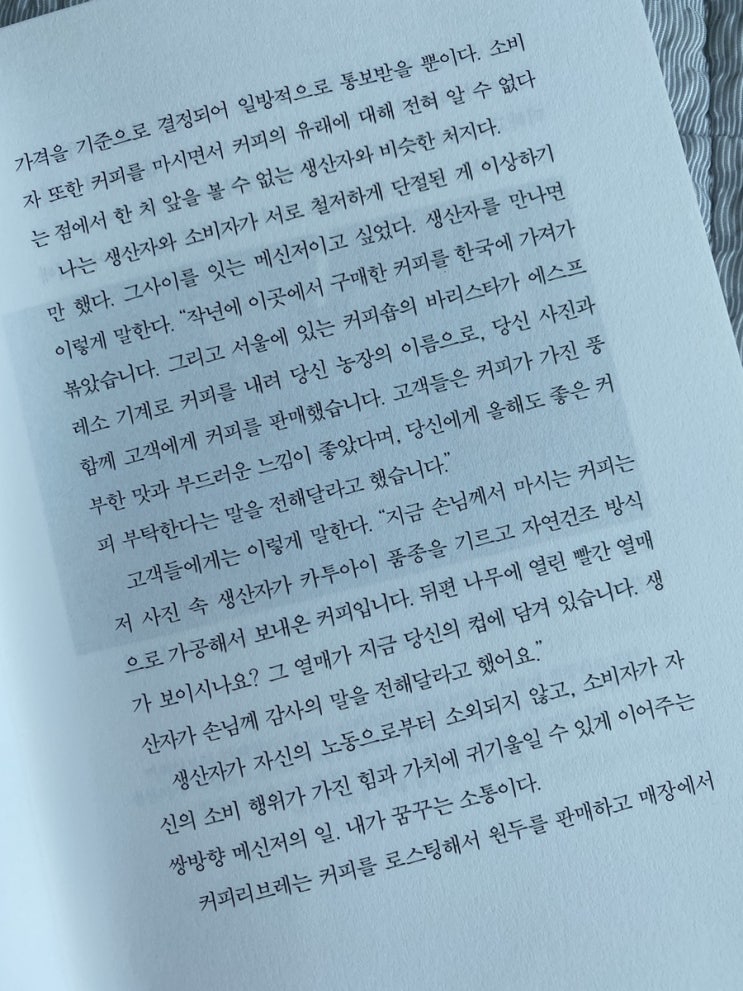 가격을 기준으로 결정되어 일방적으로 통보받을 뿐이다. 소비
자 또한 커피를 마시면서 커피의 유래에 대해 전혀 알 수 없다
는 점에서 한 치 앞을 볼 수 없는 생산자와 비슷한 처지다.
나는 생산자와 소비자가 서로 철저하게 단절된 게 이상하기
만 했다. 그사이를 잇는 메신저이고 싶었다. 생산자를 만나면
이렇게 말한다. “작년에 이곳에서 구매한 커피를 한국에 가져가
볶았습니다. 그리고 서울에 있는 커피숍의 바리스타가 에스프
레소 기계로 커피를 내려 당신 농장의 이름으로, 당신 사진과
함께 고객에게 커피를 판매했습니다. 고객들은 커피가 가진 풍
부한 맛과 부드러운 느낌이 좋았다며, 당신에게 올해도 좋은 커
피 부탁한다는 말을 전해달라고 했습니다.”
고객들에게는 이렇게 말한다. “지금 손님께서 마시는 커피는
저 사진 속 생산자가 카투아이 품종을 기르고 자연건조 방식
으로 가공해서 보내온 커피입니다. 뒤편 나무에 열린 빨간 열매
가 보이시나요? 그 열매가 지금 당신의 컵에 담겨 있습니다. 생
산자가 손님께 감사의 말을 전해달라고 했어요.”
생산자가 자신의 노동으로부터 소외되지 않고, 소비자가 자
신의 소비 행위가 가진 힘과 가치에 귀기울일 수 있게 이어주는
쌍방향 메신저의 일. 내가 꿈꾸는 소통이다.
커피리브레는 커피를 로스팅해서 원두를 판매하고 매장에서